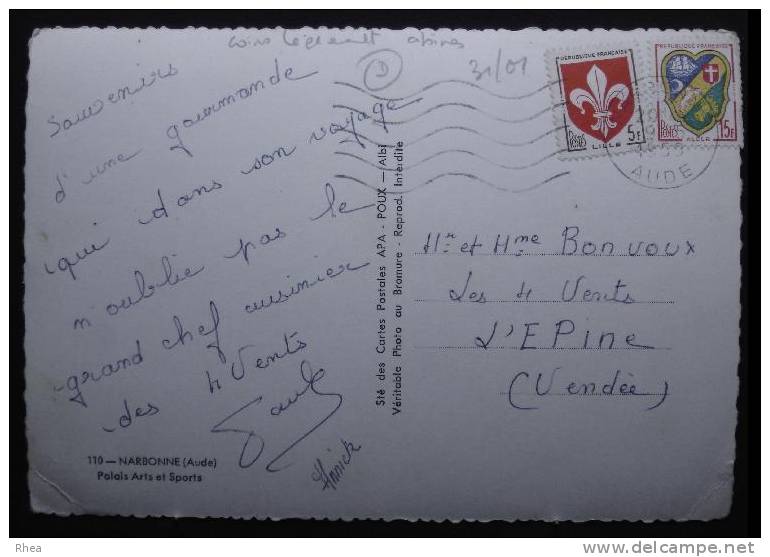 coins légèrement abimés
D
31/01
Souvenirs
d'une gourmande
qui dans son voyage
n'oublie pas le
grand chef cuisinier
des 4 Vents
Paule
Annick
110 — NARBONNE (Aude)
Palais Arts et Sports
Sté des Cartes Postales APA - POUX — Albi
Véritable Photo au Bromure - Reprod. Interdite
REPUBLIQUE FRANÇAISE
POSTES 5F
LILLE
REPUBLIQUE FRANÇAISE
POSTES 15F
ALGER
AUDE
Mr et Mme Bonvoux
Les 4 Vents
L'EPine
(Vendée)
Rhea
delcampe.net